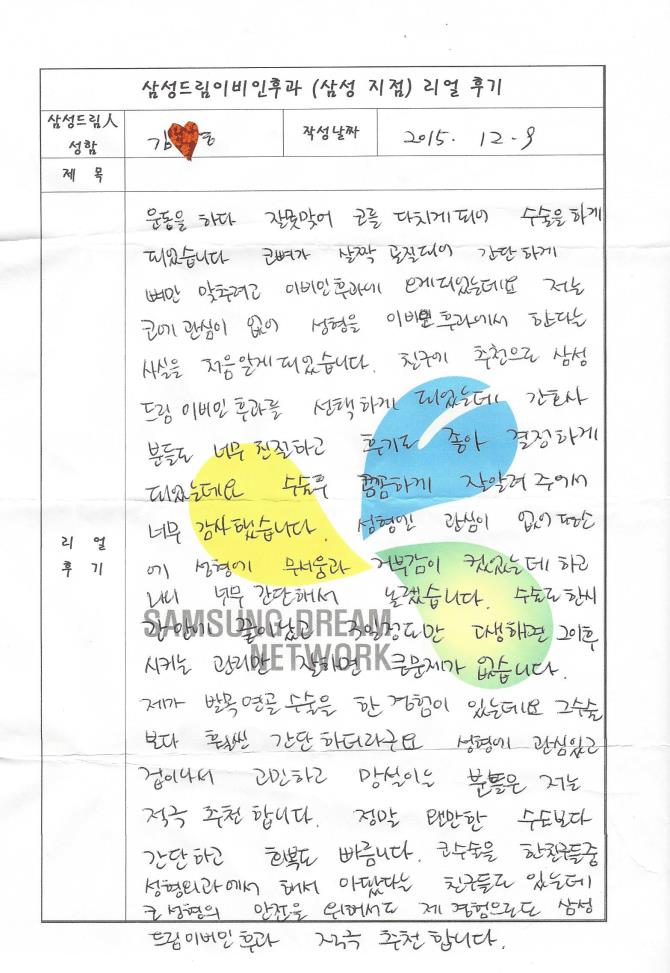 삼성드림이비인후과 (삼성 지점) 리얼 후기
삼성드림人 성함
김 동
작성날짜
2015. 12. 9
제 목
리 얼 후 기
운동을 하다 잘못맞어 코를 다치게 되어 수술을 하게
되었습니다 코뼈가 살짝 골절되어 간단하게
뼈만 맞추려고 이비인후과에 오게되었는데요 저는
코에 관심이 없어 성형을 이비인후과에서 한다는
사실을 처음알게 되었습니다. 친구에 추천으로 삼성
드림 이비인후과를 선택하게 되었는데 간호사
분들도 너무 친절하고 후기도 좋아 결정하게
되었는데요 수술후 꼼꼼하게 잘알려 주어서
너무 감사했습니다. 성형엔 관심이 없어
에 성형에 무서움과 거부감이 컸었는데 하고
나니 너무 간단해서 놀랬습니다. 수술도 한시
끝이났고 고생하면 그이후
시키는 관리만 잘하면 큰문제가 없습니다.
SAMSUNG DREAM
NETWORK
제가 발목연골 수술을 한 경험이 있는데요 그수술
보다 훨씬 간단 하더라구요 성형에 관심있고
겁이나서 고민하고 망설이는 분들은 저는
적극 추천 합니다. 정말 왠만한 수술보다
간단하고 회복도 빠릅니다. 코수술을 한친구들중
성형외과에서 해서 아팠다는 친구들도 있는데
코성형의 안전을 위해서도 제 경험으로도 삼성
드림이비인후과 적극 추천 합니다.